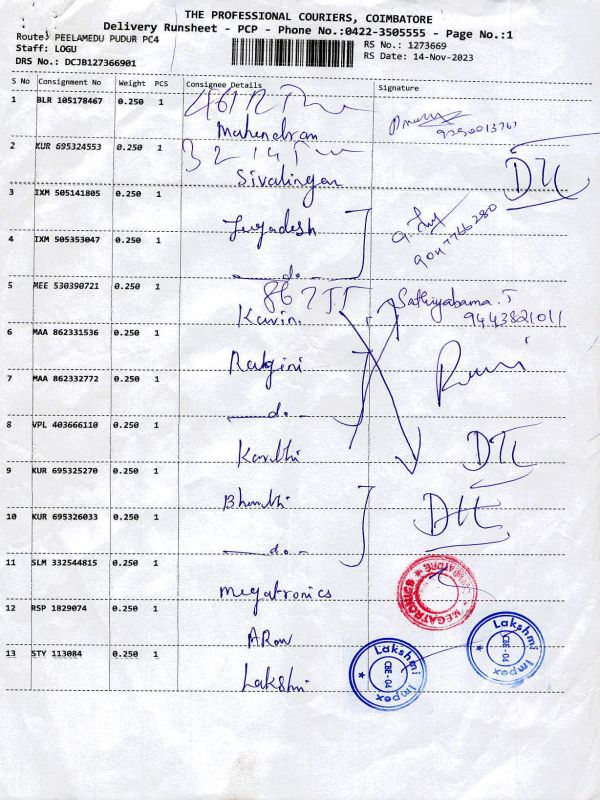 THE PROFESSIONAL COURIERS, COIMBATORE
Delivery Runsheet - PCP - Phone No.:0422-3505555 - Page No.:1
Route: PEELAMEDU PUDUR PC4
Staff: LOGU
DRS No.: DCJB127366901
RS No.: 1273669
RS Date: 14-Nov-2023
S No Consignment No Weight PCS Consignee Details Signature
1 BLR 105178467 0.250 1
Mahendran
2 KUR 695324553 0.250 1
Sivalingam DTL
3 IXM 505141805 0.250 1
Jegadesh
4 IXM 505353047 0.250 1
do 9047766280
5 MEE 530390721 0.250 1 Sathiyabama.T
Kavin 9443821011
6 MAA 862331536 0.250 1
Ragini
7 MAA 862332772 0.250 1
do
8 VPL 403666110 0.250 1
DTL
9 KUR 695325270 0.250 1
10 KUR 695326033 0.250 1
do DTL
11 SLM 332544815 0.250 1
Megatronics MEGATRONICS
12 RSP 1829074 0.250 1
Lakshmi Impex CBE-04
13 STY 113084 0.250 1
Lakshmi Lakshmi Impex CBE-04